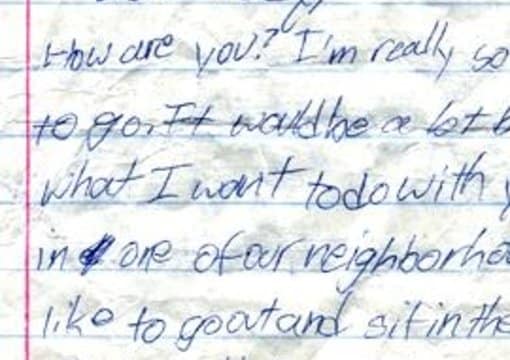 How are you? I'm really so
to go. It would be a lot b
what I want to do with y
in one of our neighborho
like to go out and sit in the